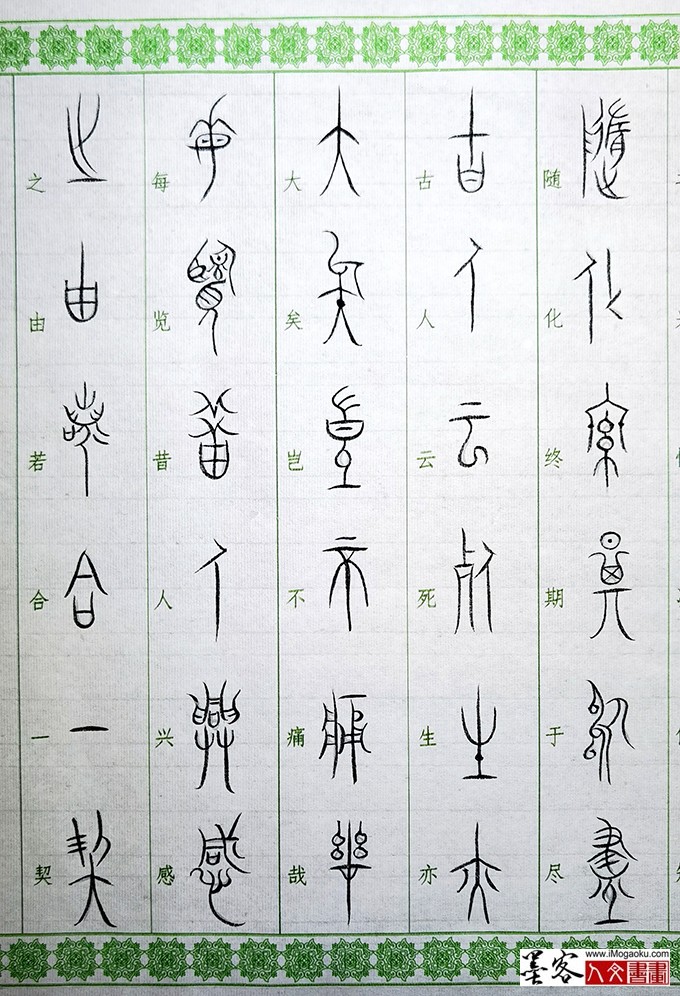 随化终期于尽
古人云死生亦
大矣岂不痛哉
每览昔人兴感
之由若合一契
www.iMogaoku.com
墨客
人文書畫